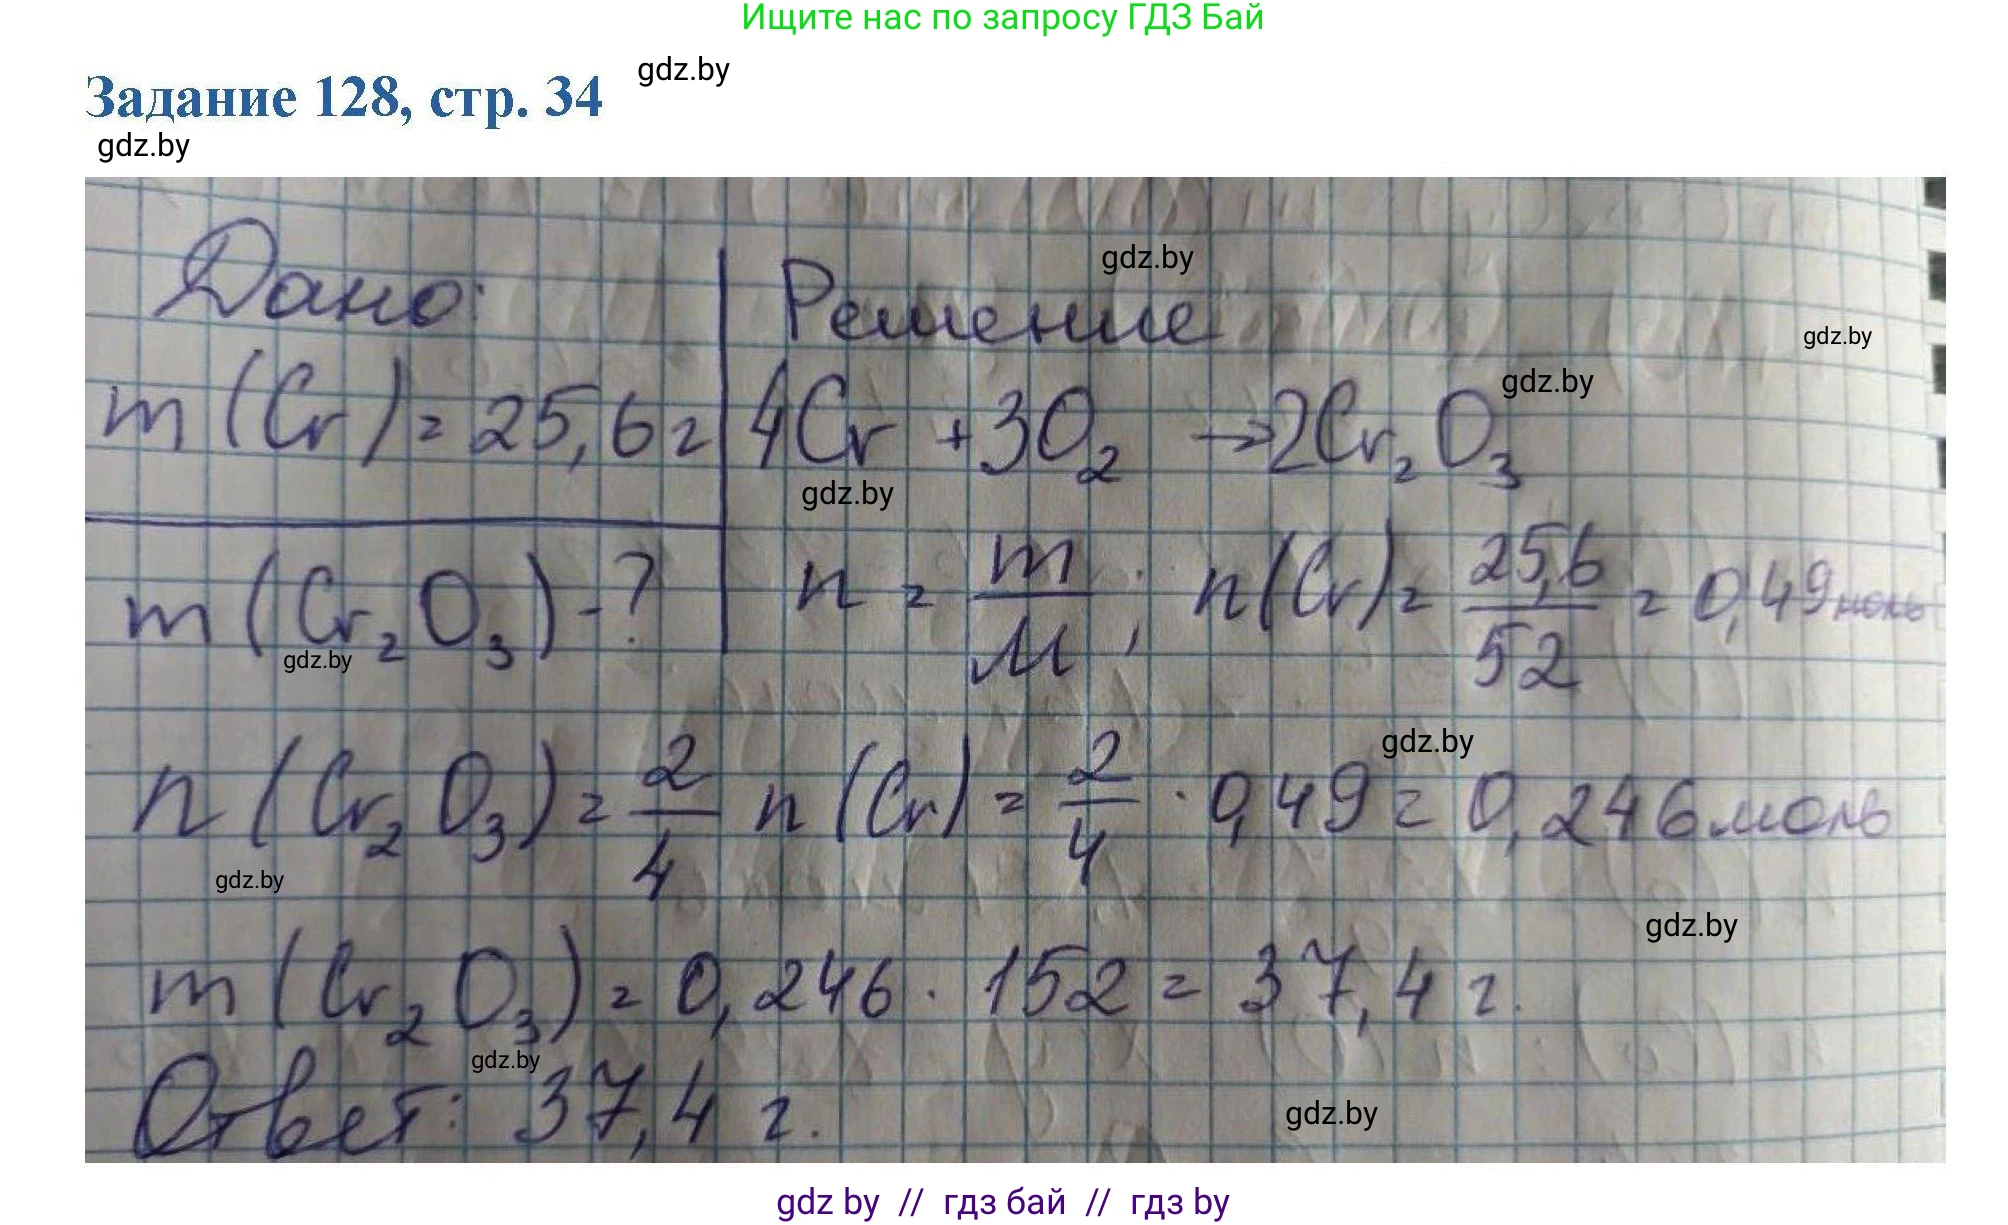 Ищите нас по запросу ГДЗ Бай
Задание 128, стр. 34
gdz.by
gdz.by
Дано:
Решение
gdz.by
gdz.by
m (Cr) = 25,6 г
4Cr + 3O₂ → 2Cr₂O₃
gdz.by
gdz.by
m (Cr₂O₃) - ?
n = m/M ; n(Cr) = 25,6/52 = 0,49 моль
gdz.by
n (Cr₂O₃) = 2/4 n (Cr) = 2/4 · 0,49 = 0,246 моль
gdz.by
gdz.by
gdz.by
m (Cr₂O₃) = 0,246 · 152 = 37,4 г.
gdz.by
Ответ: 37,4 г.
gdz.by
gdz by // гдз бай // гдз by